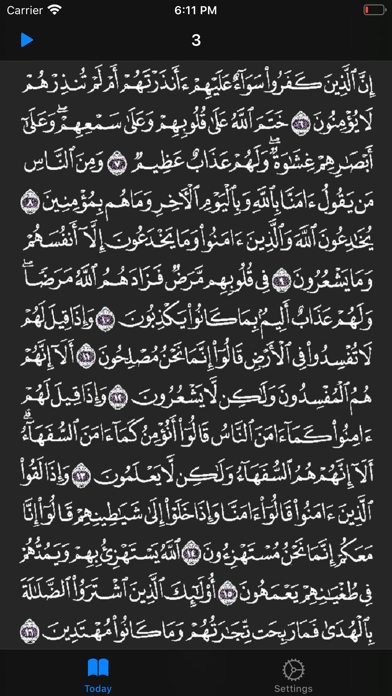 Carrier 6:11 PM
3
إِنَّ ٱلَّذِينَ كَفَرُوا۟ سَوَآءٌ عَلَيْهِمْ ءَأَنذَرْتَهُمْ أَمْ لَمْ تُنذِرْهُمْ
لَا يُؤْمِنُونَ ٦ خَتَمَ ٱللَّهُ عَلَىٰ قُلُوبِهِمْ وَعَلَىٰ سَمْعِهِمْ ۖ وَعَلَىٰٓ
أَبْصَٰرِهِمْ غِشَٰوَةٌ ۖ وَلَهُمْ عَذَابٌ عَظِيمٌ ٧ وَمِنَ ٱلنَّاسِ
مَن يَقُولُ ءَامَنَّا بِٱللَّهِ وَبِٱلْيَوْمِ ٱلْءَاخِرِ وَمَا هُم بِمُؤْمِنِينَ ٨
يُخَٰدِعُونَ ٱللَّهَ وَٱلَّذِينَ ءَامَنُوا۟ وَمَا يَخْدَعُونَ إِلَّآ أَنفُسَهُمْ
وَمَا يَشْعُرُونَ ٩ فِى قُلُوبِهِم مَّرَضٌ فَزَادَهُمُ ٱللَّهُ مَرَضًا ۖ
وَلَهُمْ عَذَابٌ أَلِيمٌۢ بِمَا كَانُوا۟ يَكْذِبُونَ ١٠ وَإِذَا قِيلَ لَهُمْ
لَا تُفْسِدُوا۟ فِى ٱلْأَرْضِ قَالُوٓا۟ إِنَّمَا نَحْنُ مُصْلِحُونَ ١١ أَلَآ إِنَّهُمْ
هُمُ ٱلْمُفْسِدُونَ وَلَٰكِن لَّا يَشْعُرُونَ ١٢ وَإِذَا قِيلَ لَهُمْ
ءَامِنُوا۟ كَمَآ ءَامَنَ ٱلنَّاسُ قَالُوٓا۟ أَنُؤْمِنُ كَمَآ ءَامَنَ ٱلسُّفَهَآءُ ۗ
أَلَآ إِنَّهُمْ هُمُ ٱلسُّفَهَآءُ وَلَٰكِن لَّا يَعْلَمُونَ ١٣ وَإِذَا لَقُوا۟
ٱلَّذِينَ ءَامَنُوا۟ قَالُوٓا۟ ءَامَنَّا وَإِذَا خَلَوْا۟ إِلَىٰ شَيَٰطِينِهِمْ قَالُوٓا۟ إِنَّا
مَعَكُمْ إِنَّمَا نَحْنُ مُسْتَهْزِءُونَ ١٤ ٱللَّهُ يَسْتَهْزِئُ بِهِمْ وَيَمُدُّهُمْ
فِى طُغْيَٰنِهِمْ يَعْمَهُونَ ١٥ أُو۟لَٰٓئِكَ ٱلَّذِينَ ٱشْتَرَوُا۟ ٱلضَّلَٰلَةَ
بِٱلْهُدَىٰ فَمَا رَبِحَت تِّجَٰرَتُهُمْ وَمَا كَانُوا۟ مُهْتَدِينَ ١٦
Today Settings